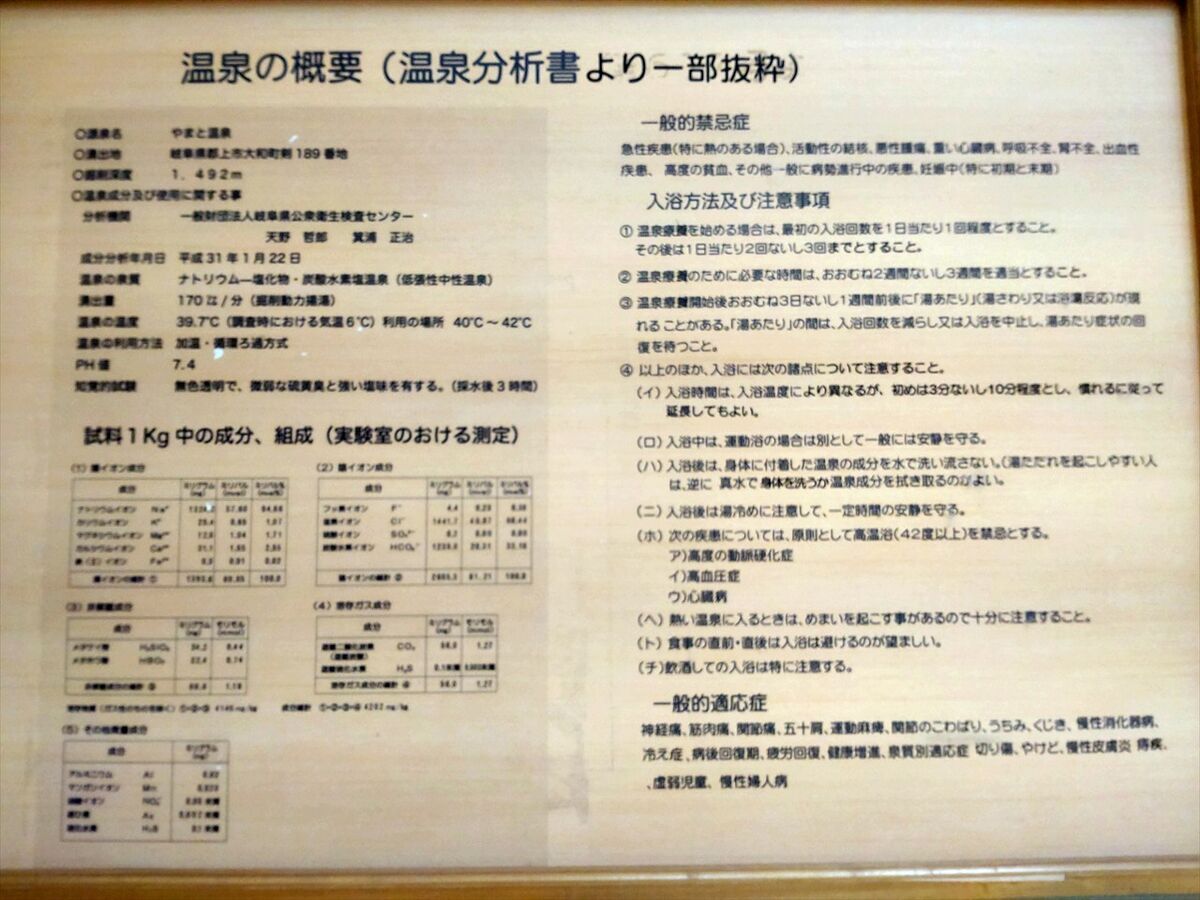 温泉の概要（温泉分析書より一部抜粋）
○源泉名 やまと温泉
○湧出地 岐阜県郡上市大和町剣189番地
○掘削深度 1．492m
○温泉成分及び使用に関する事
分析機関 一般財団法人岐阜県公衆衛生検査センター
天野 哲郎 箕浦 正治
成分分析年月日 平成31年1月22日
温泉の泉質 ナトリウム―塩化物・炭酸水素塩温泉（低張性中性温泉）
湧出量 170㍑/分（掘削動力揚湯）
温泉の温度 39.7℃（調査時における気温6℃）利用の場所 40℃～42℃
温泉の利用方法 加温・循環ろ過方式
PH値 7.4
知覚的試験 無色透明で、微弱な硫黄臭と強い塩味を有する。（採水後3時間）
試料1Kg中の成分、組成（実験室のおける測定）
(1) 陽イオン成分
成分 ミリグラム(mg) ミリバル(mval) ミリバル%(mval%)
ナトリウムイオン Na⁺
カリウムイオン K⁺ 1.07
マグネシウムイオン Mg²⁺ 1.04 1.71
カルシウムイオン Ca²⁺
陽イオンの総計 ① 100.0
(2) 陰イオン成分
成分 ミリグラム(mg) ミリバル(mval) ミリバル%(mval%)
フッ素イオン F⁻ 4.4 0.23
塩素イオン Cl⁻ 1441.7
硫酸イオン SO₄²⁻
炭酸水素イオン HCO₃⁻
陰イオンの総計 ② 100.0
(3) 非解離成分
成分 ミリグラム(mg) ミリモル(mmol)
メタケイ酸 H₂SiO₃ 0.44
メタホウ酸 HBO₂ 0.74
非解離成分の総計 ③ 1.18
(4) 溶存ガス成分
成分 ミリグラム(mg) ミリモル(mmol)
遊離二酸化炭素 CO₂ 56.0 1.27
（遊離炭酸）
遊離硫化水素 H₂S 0.1未満
溶存ガス成分の総計 ④ 56.0 1.27
溶存物質（ガス性のものを除く）①+②+③ 4146mg/kg 成分総計 ①+②+③+④ 4202mg/kg
(5) その他微量成分
成分 ミリグラム(mg)
アルミニウム Al
マンガンイオン Mn
硝酸イオン NO₃⁻
総ひ素 As
一般的禁忌症
急性疾患（特に熱のある場合）、活動性の結核、悪性腫瘍、重い心臓病、呼吸不全、腎不全、出血性
疾患、 高度の貧血、その他一般に病勢進行中の疾患、妊娠中（特に初期と末期）
入浴方法及び注意事項
① 温泉療養を始める場合は、最初の入浴回数を1日当たり1回程度とすること。
その後は1日当たり2回ないし3回までとすること。
② 温泉療養のために必要な時間は、おおむね2週間ないし3週間を適当とすること。
③ 温泉療養開始後おおむね3日ないし1週間前後に「湯あたり」（湯さわり又は浴湯反応）が現
れることがある。「湯あたり」の間は、入浴回数を減らし又は入浴を中止し、湯あたり症状の回
復を待つこと。
④ 以上のほか、入浴には次の諸点について注意すること。
（イ）入浴時間は、入浴温度により異なるが、初めは3分ないし10分程度とし、慣れるに従って
延長してもよい。
（ロ）入浴中は、運動浴の場合は別として一般には安静を守る。
（ハ）入浴後は、身体に付着した温泉の成分を水で洗い流さない。（湯ただれを起こしやすい人
は、逆に 真水で身体を洗うか温泉成分を拭き取るのがよい。
（ニ）入浴後は湯冷めに注意して、一定時間の安静を守る。
（ホ）次の疾患については、原則として高温浴（42度以上）を禁忌とする。
ア）高度の動脈硬化症
イ）高血圧症
ウ）心臓病
（ヘ）熱い温泉に入るときは、めまいを起こす事があるので十分に注意すること。
（ト）食事の直前・直後は入浴は避けるのが望ましい。
（チ）飲酒しての入浴は特に注意する。
一般的適応症
神経痛、筋肉痛、関節痛、五十肩、運動麻痺、関節のこわばり、うちみ、くじき、慢性消化器病、
冷え症、病後回復期、疲労回復、健康増進、泉質別適応症 切り傷、やけど、慢性皮膚炎 痔疾、
、虚弱児童、慢性婦人病